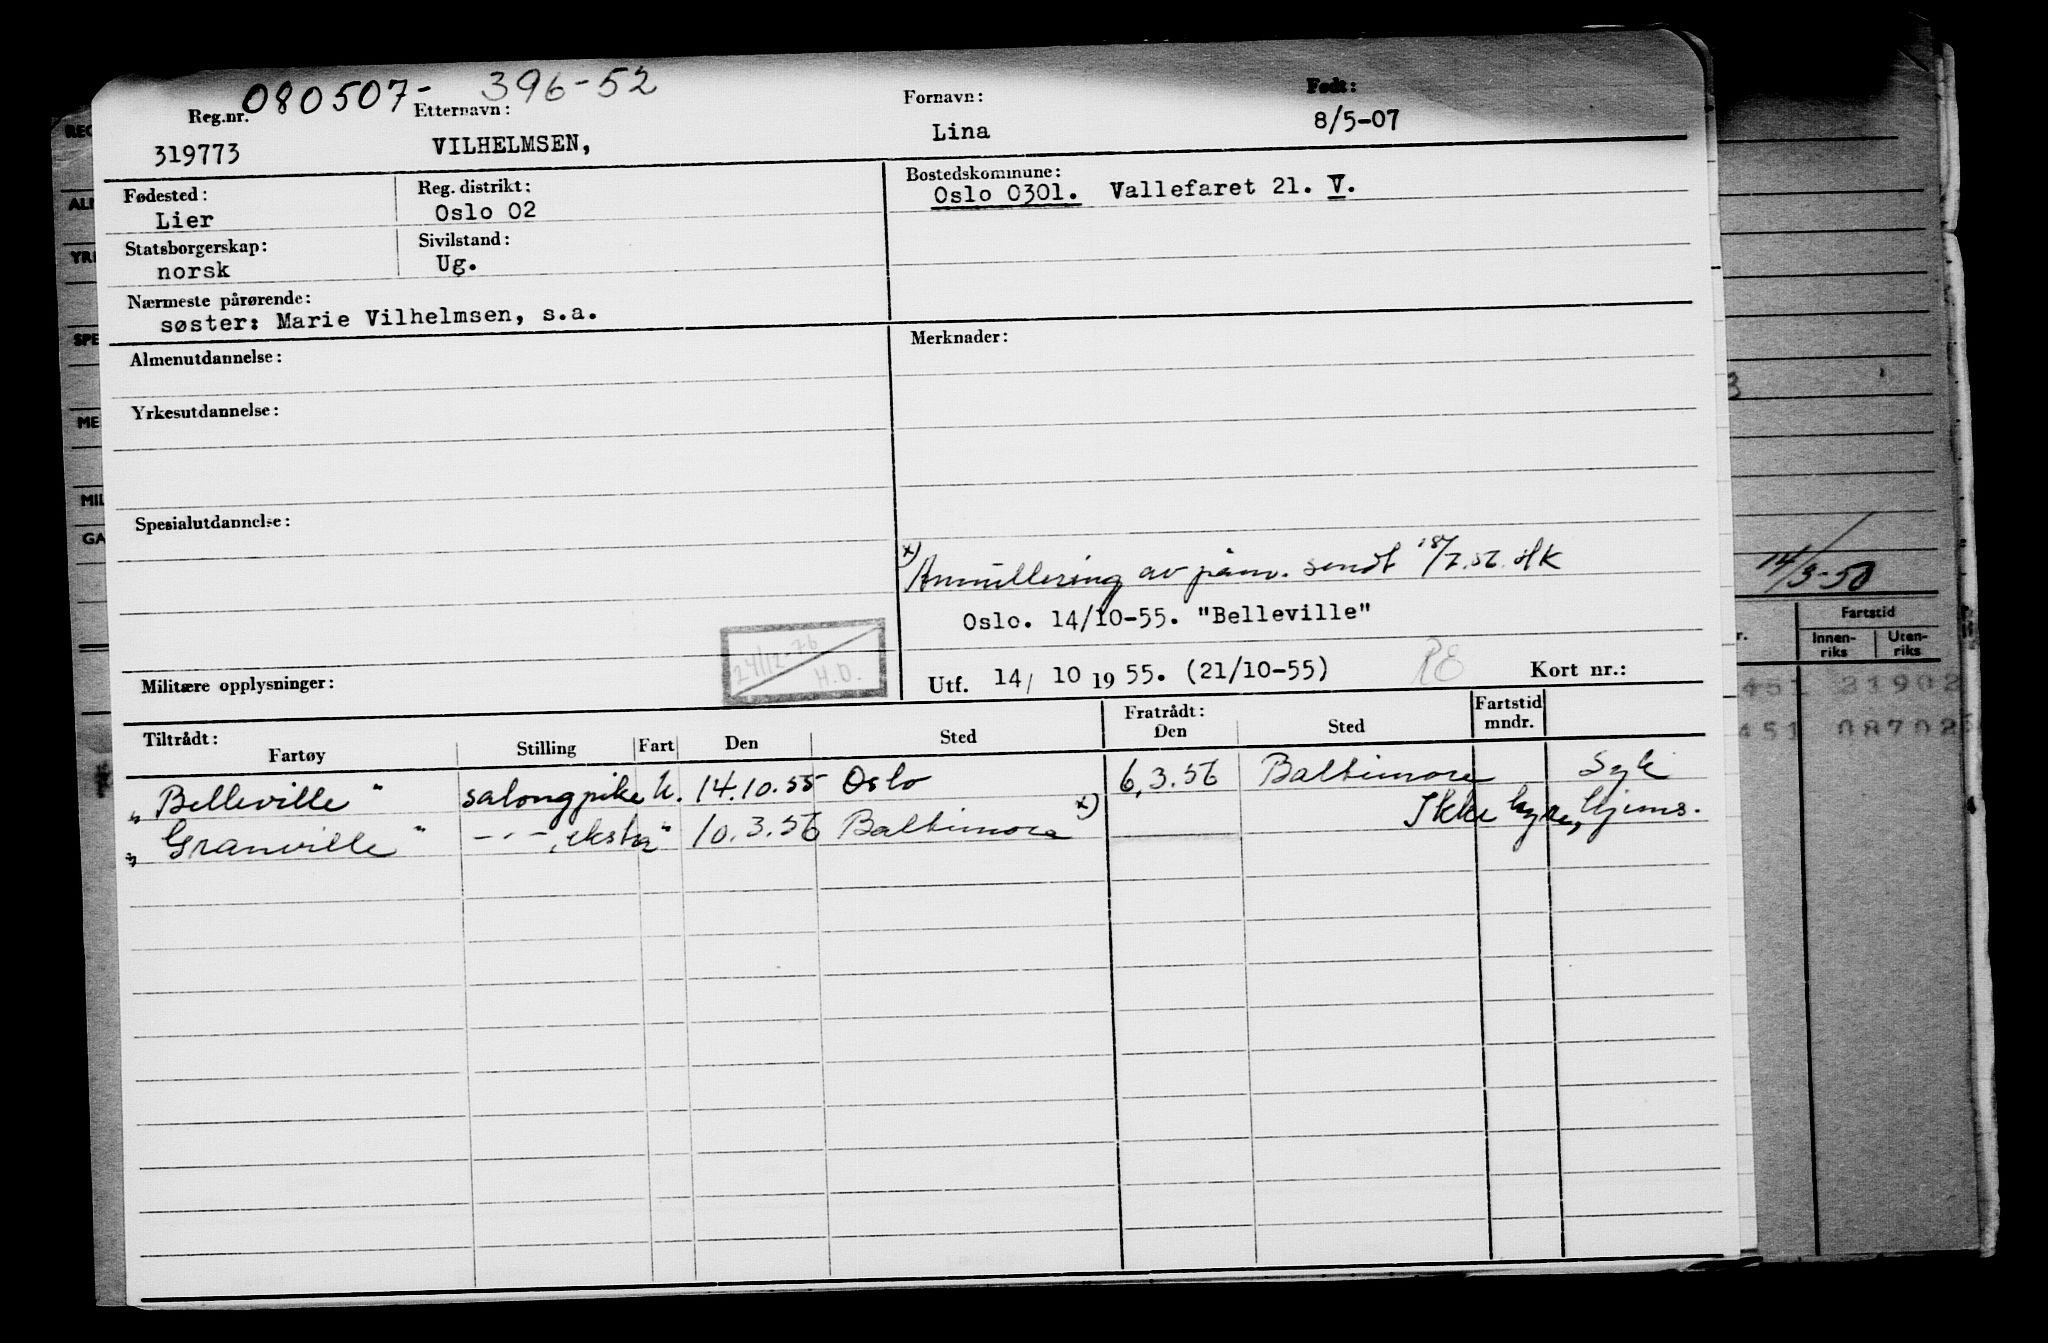 080507- 396-52
Reg.nr. Etternavn: Fornavn: Født:
319773 VILHELMSEN, Lina 8/5-07
Fødested: Reg. distrikt: Bostedskommune:
Lier Oslo 02 Oslo 0301. Vallefaret 21. V.
Statsborgerskap: Sivilstand:
norsk Ug.
Nærmeste pårørende:
søster: Marie Vilhelmsen, s.a.
Almenutdannelse: Merknader:
Yrkesutdannelse:
Spesialutdannelse:
x) Annullering av påm. sendt 18/7.56. HK
Oslo. 14/10-55. "Belleville"
24/12-76
H.O.
Militære opplysninger: Utf. 14/ 10 19 55. (21/10-55) RE Kort nr.:
Tiltrådt: Fratrådt: Fartstid
Fartøy Stilling Fart Den Sted Den Sted mndr.
"Belleville" salongpike U. 14.10.55 Oslo 6.3.56 Baltimore Syk
"Granville" - " - , ekstra " 10.3.56 Baltimore x) Ikke hyre, hjems.
REG
ALM
YRK
SPE
ME
MIL
GA
3
14/3-58
Fartstid
r. Innen- Uten-
riks riks
451 21902
451 08702